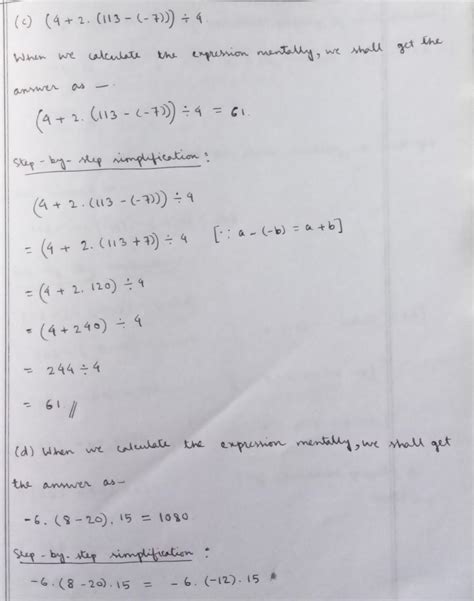 (c) (4 + 2. (113 - (-7))) ÷ 4.
When we calculate the expression mentally, we shall get the
answer as —.
(4 + 2. (113 - (-7))) ÷ 4 = 61.
Step-by-step simplification :
(4 + 2. (113 - (-7))) ÷ 4
= (4 + 2. (113 + 7)) ÷ 4 [∵ a - (-b) = a + b]
= (4 + 2. 120) ÷ 4
= (4 + 240) ÷ 4
= 244 ÷ 4
= 61 //
(d) When we calculate the expression mentally, we shall get
the answer as —
-6. (8 - 20). 15 = 1080
Step-by-step simplification :
-6. (8 - 20). 15 = -6. (-12). 15